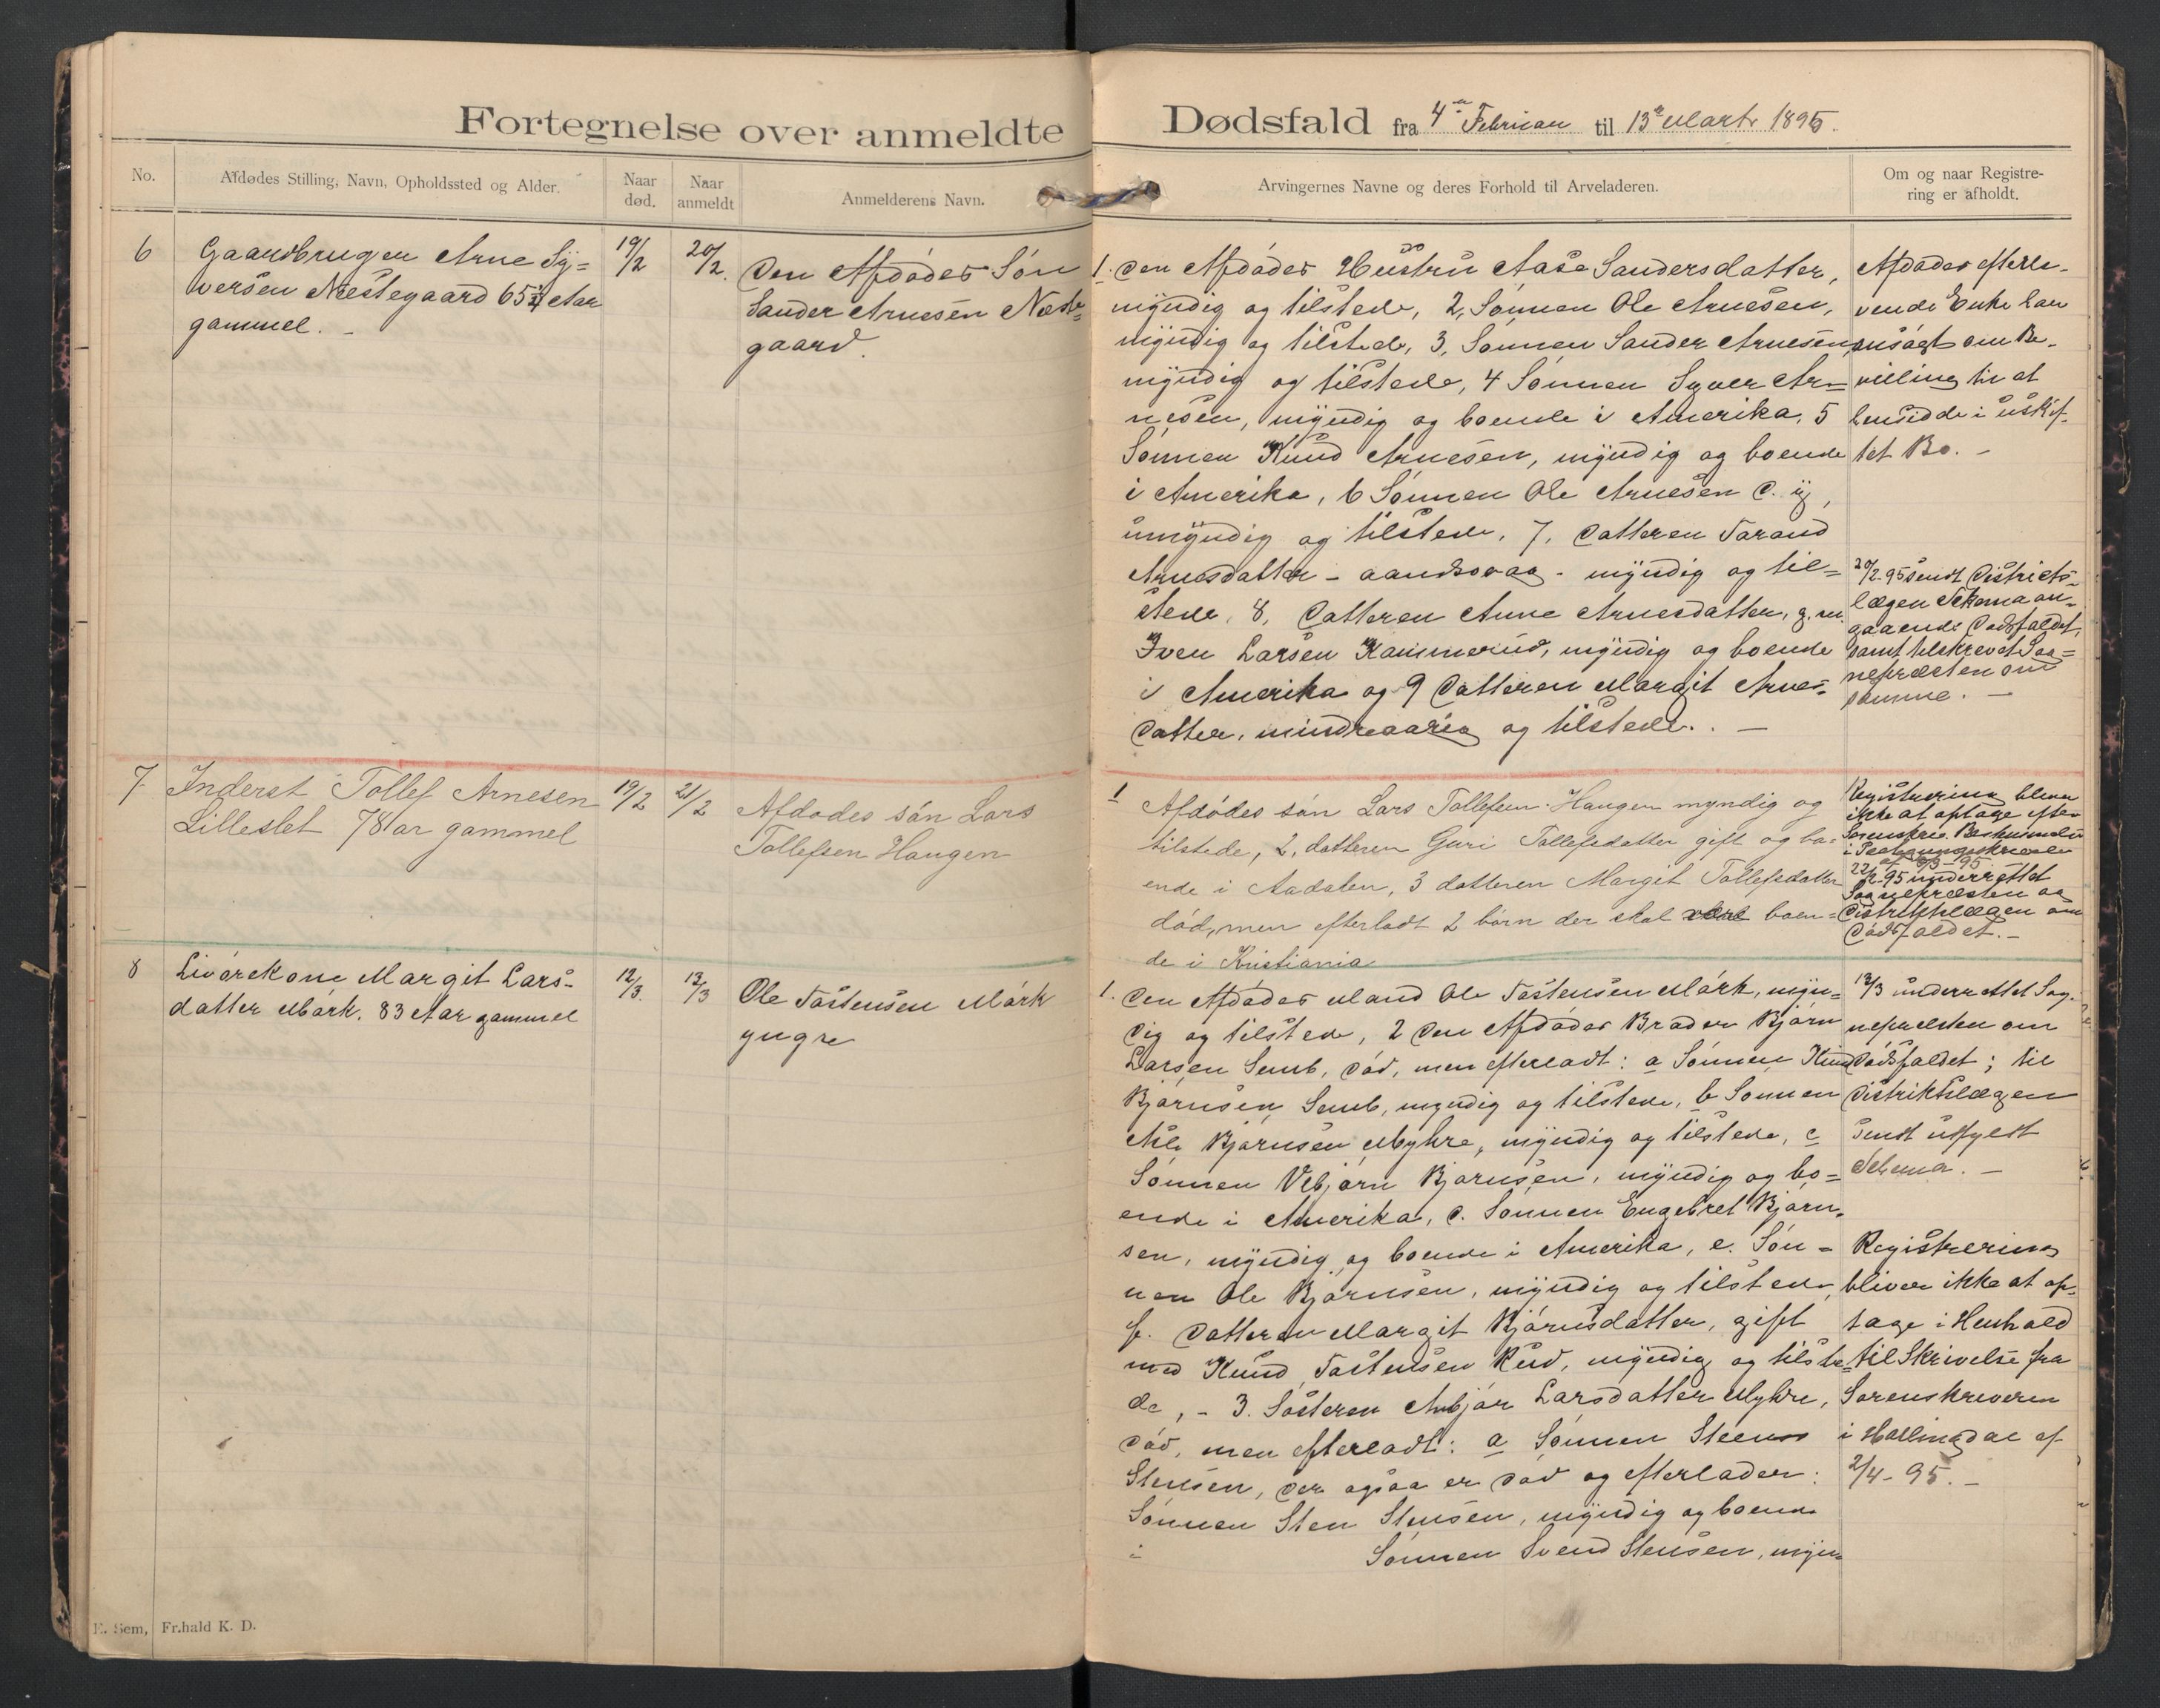 Fortegnelse over anmeldte Dødsfald fra 4de Februar til 13de Marts 1895.
No.
Afdødes Stilling, Navn, Opholdssted og Alder.
Naar
død.
Naar
anmeldt
Anmelderens Navn.
Arvingernes Navne og deres Forhold til Arveladeren.
Om og naar Registre-
ring er afholdt.
6
Gaardbruger Arne Sy=
versen Nestegaard 65 1/2 Aar
gammel. -
19/2
20/2.
Den Afdødes Søn
Sander Arnesen Neste=
gaard.
1. Den Afdødes Hustru Aase Sandersdatter,
myndig og tilstede, 2, Sønnen Ole Arnesen,
myndig og tilstede, 3, Sønnen Sander Arnesen,
myndig og tilstede, 4 Sønnen Syver Ar=
nesen, myndig og boende i Amerika, 5
Sønnen Knud Arnesen, myndig og boende
i Amerika, 6 Sønnen Ole Arnesen d. y,
umyndig og tilstede, 7, Datteren Tarand
Arnesdatter - aandssvag - myndig og til=
stede, 8, Datteren Anne Arnesdatter, g. m.
Iven Larsen Kammerud, myndig og boende
i Amerika og 9 Datteren Margit Arnes=
datter, mindreaarig og tilstede. . -
Afdødes efterle-
vende Enke har
ansøgt om Be-
villing til at
hensidde i uskif-
tet Bo. -
20/2-95 sendt Distrikts-
lægen Schema an-
gaaende Dødsfaldet,
samt tilskrevet Sog=
nepræsten om
samme. -
7
Inderst Tollef Arnesen
Lilleslet 78 ar gammel
19/2
21/2
Afdødes søn Lars
Tollefsen Haugen
1 Afdødes søn Lars Tollefsen Haugen myndig og
tilstede, 2, datteren Guri Tollefsdatter gift og bo=
ende i Aadalen, 3 datteren Margit Tollefsdatter
død, men efterladt 2 børn der skal være boen=
de i Kristiania
Registrering bliver
ikke at optage efter
Sorenskriv. Bestemmelse
i
22/2-95 underrettet
Sognepræsten og
Distriktslægen om
Dødsfaldet. -
8
Livørekone Margit Lars-
datter Mørk. 83 Aar gammel
12/3.
13/3
Ole Tostensen Mørk
yngre
1. Den Afdødes Mand Ole Tostensen Mørk, myn=
dig og tilstede, 2 Den Afdødes Broder Bjørn
Larsen Semb, død, men efterladt: a Sønnen Knud
Bjørnsen Semb, myndig og tilstede, b Sønnen
Asle Bjørnsen Myhre, myndig og tilstede, c
Sønnen Vebjørn Bjørnsen, myndig og bo=
ende i Amerika, d. Sønnen Engebret Bjørn-
sen, myndig og boende i Amerika, e. Søn=
nen Ole Bjørnsen, myndig og tilstede,
f. Datteren Margit Bjørnsdatter, gift
med Knud Tostensen Rud, myndig og tilste=
de, - 3. Søsteren Anbjør Larsdatter Myhre,
død, men efterladt: a Sønnen Steen
Stensen, der ogsaa er død og efterlader:
Sønnen Sten Stensen, myndig og boende
i Sønnen Svend Stensen, myn-
13/3 underrettet Sog-
nepræsten om
Dødsfaldet; til
Distriktslægen
sendt udfyldt
Schema. -
Registrering
bliver ikke at op-
tage i Henhold
til Skrivelse fra
Sorenskriveren
i Hallingdal af
2/4-95. -
E. Sem, Fr.hald K. D.